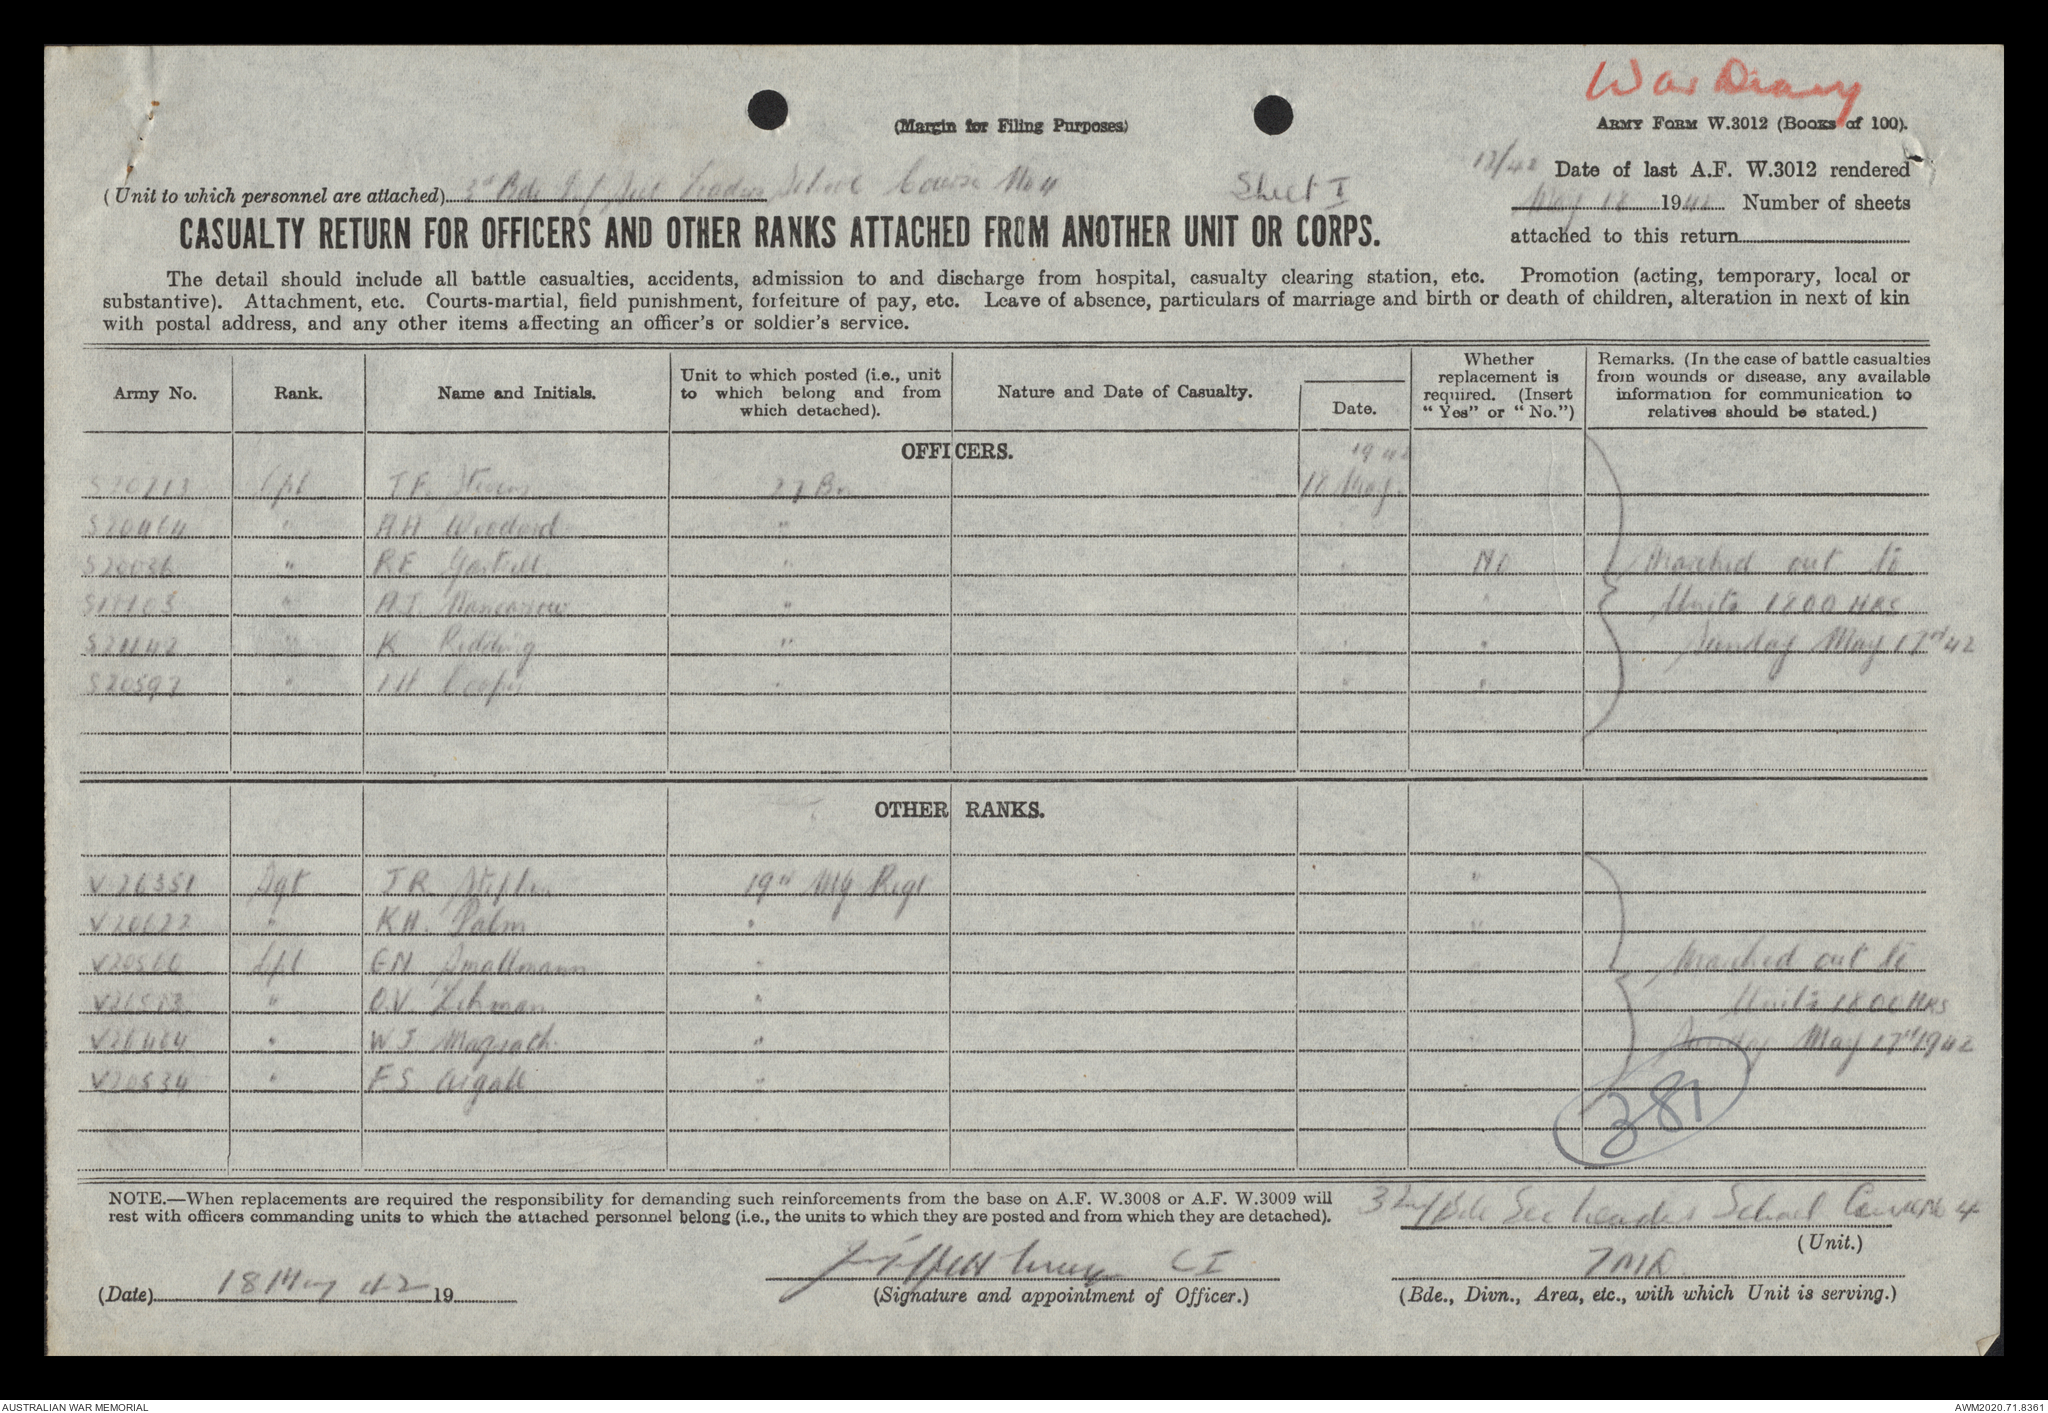 War Diary
(Margin for Filing Purposes)
ARMY FORM W.3012 (Books of 100).
12/42 Date of last A.F. W.3012 rendered
May 18 1942 Number of sheets
attached to this return
(Unit to which personnel are attached) Bde Leaders School Course No 4 Sheet I
CASUALTY RETURN FOR OFFICERS AND OTHER RANKS ATTACHED FROM ANOTHER UNIT OR CORPS.
The detail should include all battle casualties, accidents, admission to and discharge from hospital, casualty clearing station, etc. Promotion (acting, temporary, local or
substantive). Attachment, etc. Courts-martial, field punishment, forfeiture of pay, etc. Leave of absence, particulars of marriage and birth or death of children, alteration in next of kin
with postal address, and any other items affecting an officer's or soldier's service.
Army No. Rank. Name and Initials. Unit to which posted (i.e., unit to which belong and from which detached). Nature and Date of Casualty. Date. Whether replacement is required. (Insert "Yes" or "No.") Remarks. (In the case of battle casualties from wounds or disease, any available information for communication to relatives should be stated.)
OFFICERS. 1942
Cpl J.F. Stevens 27 Bn 18 May
S20464 " A.H Woodard " "
" R.E " " No Marched out to
" A.J. Nancarrow " " " Units 1800 HRS
" K Redding " " " Sunday May 17th 42
S20597 " Cooper " " "
OTHER RANKS.
V26351 Sgt J R Stephen 19th MG Regt "
" K H. Palm " "
Cpl E N Smallmann " Marched out to
" O.V. Lehman " Units 1800 HRS
" W J Magrath " Sunday May 17th 1942
V20534 " F S Argall "
381
NOTE.—When replacements are required the responsibility for demanding such reinforcements from the base on A.F. W.3008 or A.F. W.3009 will
rest with officers commanding units to which the attached personnel belong (i.e., the units to which they are posted and from which they are detached).
Bde Sec Leaders School Course No 4
(Unit.)
(Date) 18 May 42 19
CI
(Signature and appointment of Officer.)
(Bde., Divn., Area, etc., with which Unit is serving.)
AUSTRALIAN WAR MEMORIAL
AWM2020.71.8361